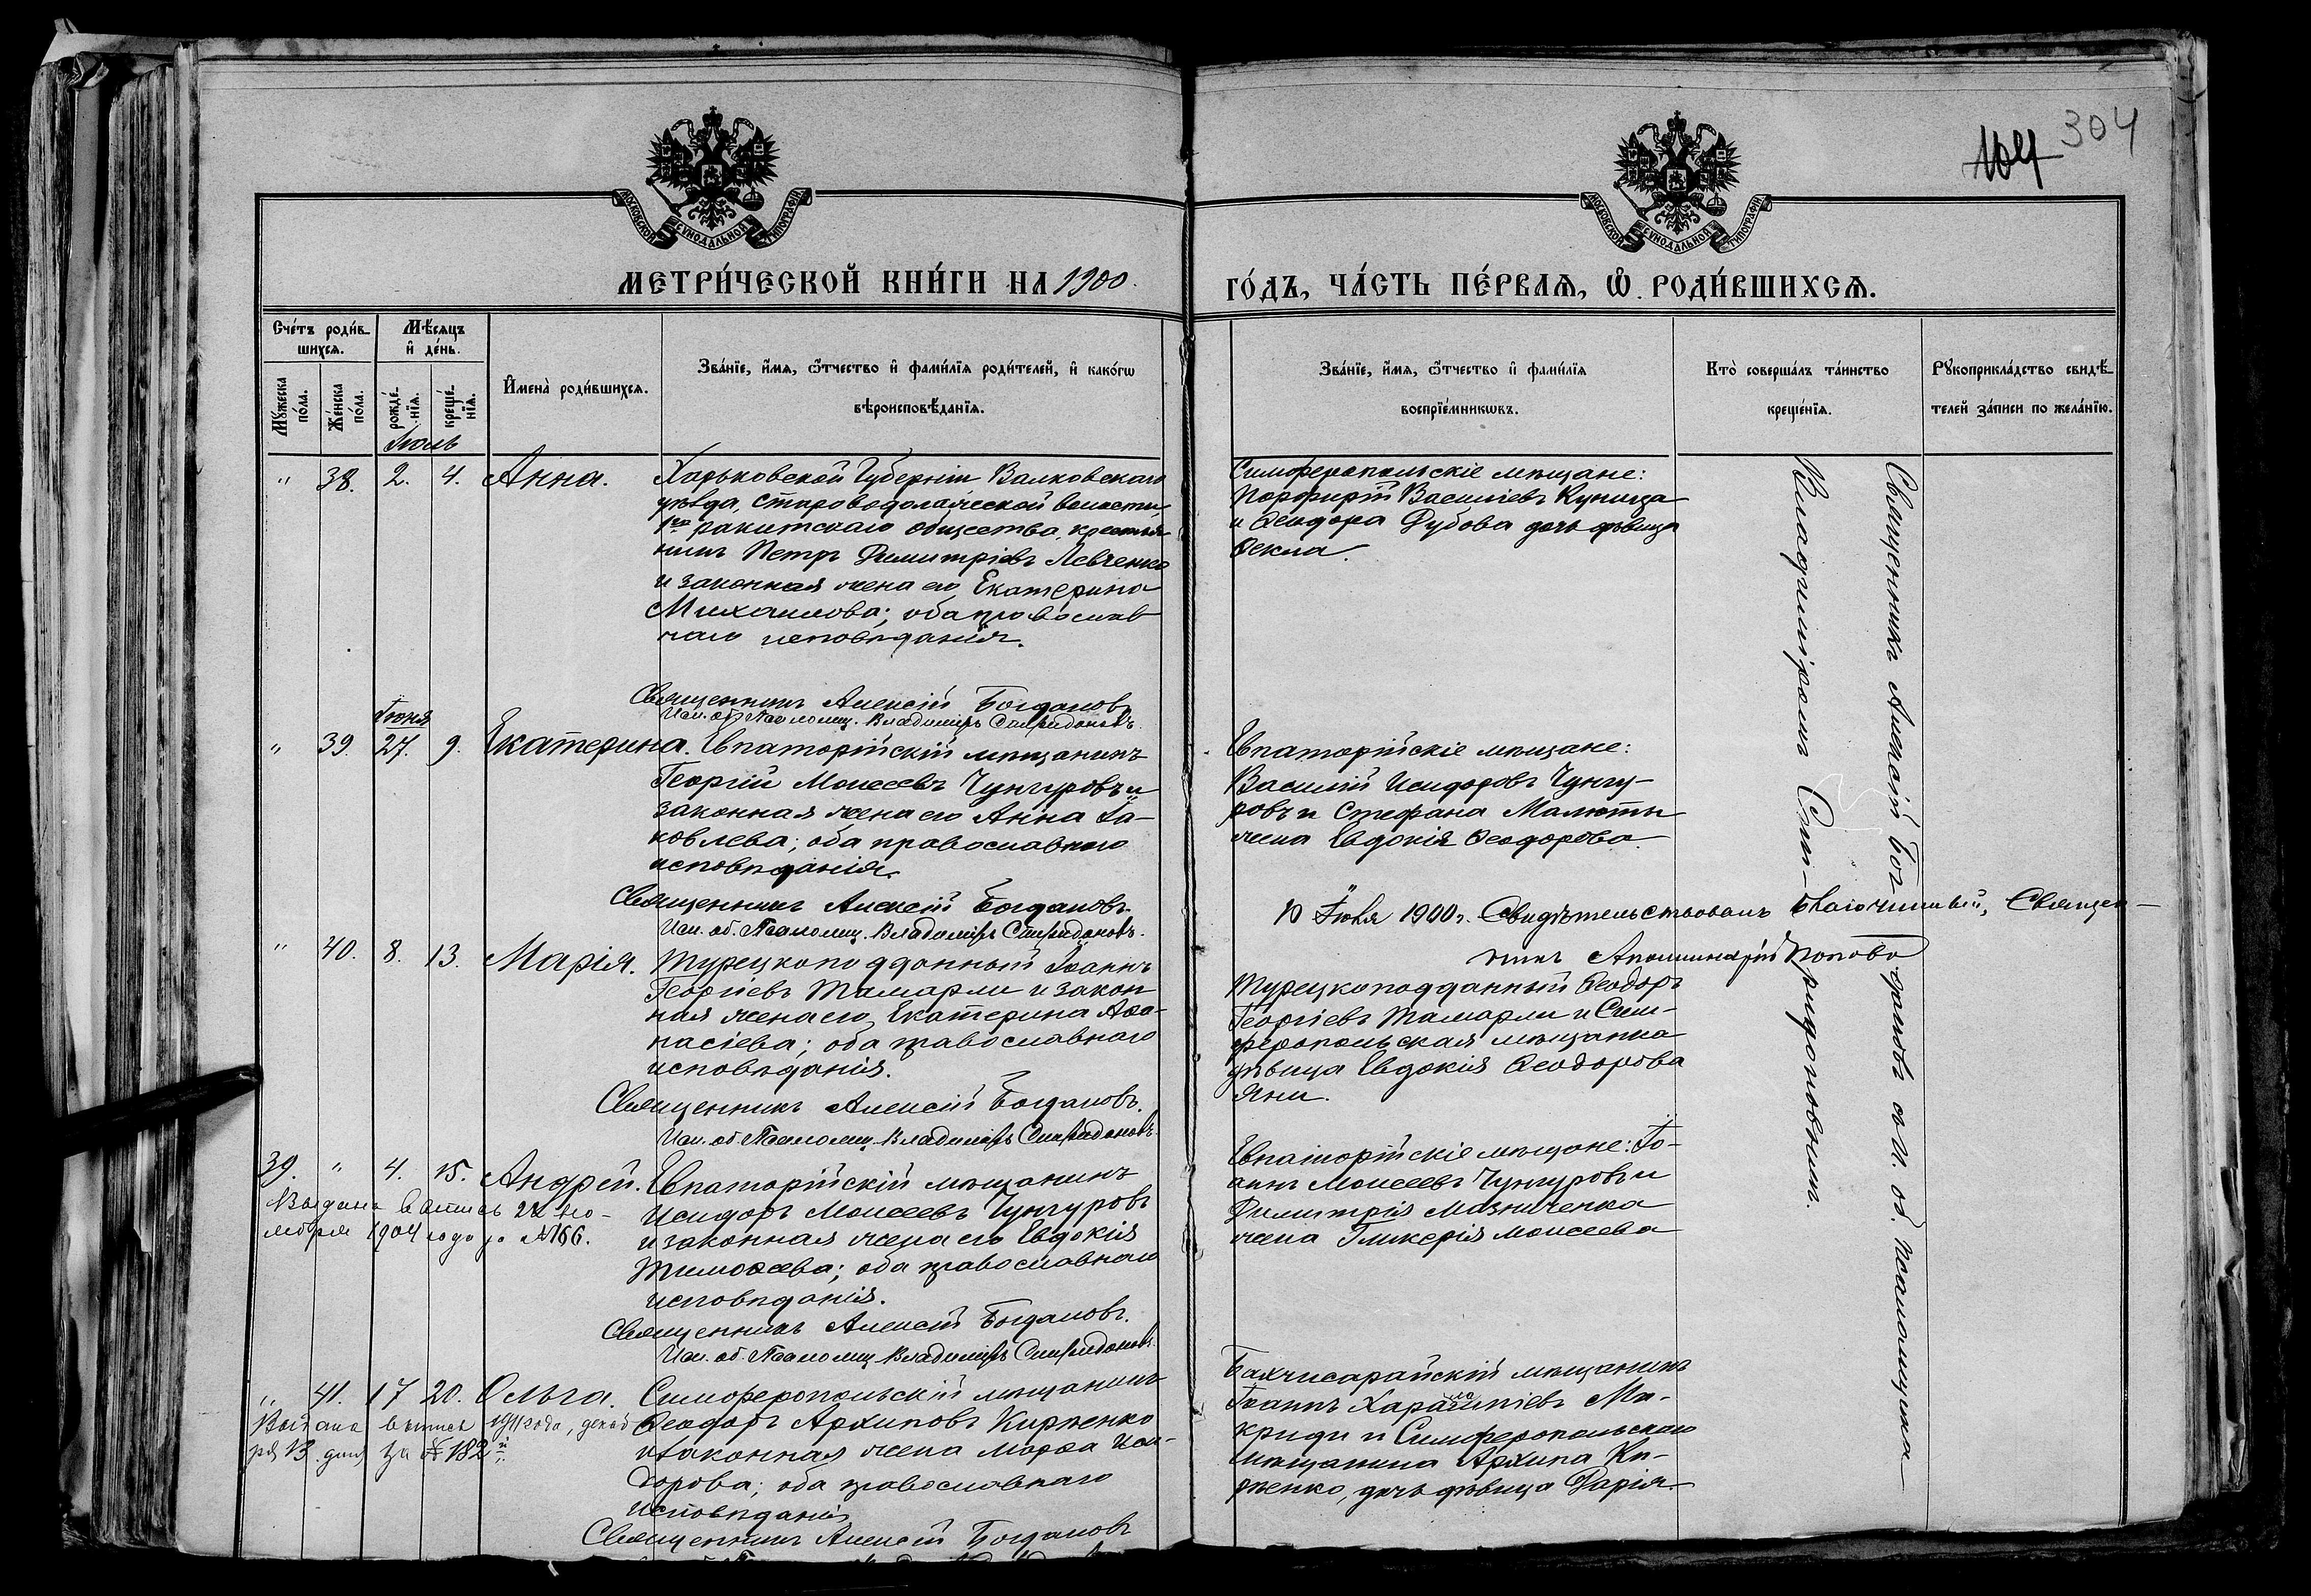 304
104
МОСКОВСКОЙ СУНОДАЛЬНОЙ ТИПОГРАФІИ
МОСКОВСКОЙ СУНОДАЛЬНОЙ ТИПОГРАФІИ
МЕТРИ́ЧЕСКОЙ КНИ́ГИ НА 1900.
ГО́ДЪ, ЧА́СТЬ ПЕ́РВАѦ, Ѡ РОДИ́ВШИХСѦ.
Сче́тъ роди́в-
шихсѧ.
Мѣ́сѧцъ
и҆ де́нь.
Мꙋ́жеска по́ла.
Же́нска по́ла.
рожде́-
нїѧ.
креще́-
нїѧ.
И҆мена̀ роди́вшихсѧ.
Зва́нїе, и҆́мѧ, ѻ҆́тчество и҆ фами́лїѧ роди́телей, и҆ како́гѡ
вѣроисповѣ́данїѧ.
Зва́нїе, и҆́мѧ, ѻ҆́тчество и҆ фами́лїѧ
воспрїе́мникѡвъ.
Кто̀ соверша́лъ та́инство
креще́нїѧ.
Рꙋкоприкла́дство свидѣ́-
телей за́писи по жела́нїю.
Іюль
" 38. 2. 4. Анна.
Харьковской Губерніи Валковскаго
уѣзда, Староводолажской волости,
1го ракитскаго общества, крестья-
нинъ Петръ Димитріевъ Левченко
и законная жена его Екатерина
Михаилова; оба православ
наго исповѣданія.
Священникъ Алексій Богдановъ
Исп. об. Псаломщ. Владиміръ Спиридоновъ.
Симферопольскіе мѣщане:
Порфирій Васильевъ Куница
и Ѳеодора Дубова дочь дѣвица
Ѳекла.
Священникъ Алексій Богдановъ съ И. об. псаломщика
Владиміромъ Спиридоновымъ.
Іюня
" 39. 27. 9. Екатерина.
Евпаторійскій мѣщанинъ
Георгій Моисеевъ Чунгуровъ и
законная жена его Анна Іа-
ковлева; оба православнаго
исповѣданія.
Священникъ Алексій Богдановъ.
Исп. об. Псаломщ. Владиміръ Спиридоновъ.
Евпаторійскіе мѣщане:
Василій Исидоровъ Чунгу-
ровъ и Стефана Малюты
жена Евдокія Ѳеодорова.
10 Іюля 1900 г. Свидѣтельствовалъ Благочинный, Священ-
никъ Аполлинарій Поповъ
" 40. 8. 13. Марія.
Турецкоподданный Іоаннъ
Георгіевъ Тамарли и закон
ная жена его Екатерина Аѳа-
насіева; оба православнаго
исповѣданія.
Священникъ Алексій Богдановъ.
Исп. об. Псаломщ. Владиміръ Спиридоновъ.
Турецкоподданный Ѳеодоръ
Георгіевъ Тамарли и Сим-
феропольская мѣщанка
дѣвица Евдокія Ѳеодорова
Яни.
39. " 4. 15. Андрей.
Выдана выпись 22 но-
ября 1904 года за №166.
Евпаторійскій мѣщанинъ
Исидоръ Моисеевъ Чунгуровъ
и законная жена его Евдокія
Тимоѳеева; оба православнаго
исповѣданія.
Священникъ Алексій Богдановъ.
Исп. об. Псаломщ. Владиміръ Спиридоновъ.
Евпаторійскіе мѣщане: Іо-
аннъ Моисеевъ Чунгуровъ и
Димитрія Мазниченка
жена Гликерія Моисеева
" 41. 17 20. Ольга.
Выдана выпись 1911 года, декаб
ря 13 дня за № 182
Симферопольскій мѣщанинъ
Ѳеодоръ Архиповъ Кирпенко
и законная жена Марѳа Иси-
дорова; оба православнаго
исповѣданія
Священникъ Алексій Богдановъ
Бахчисарайскій мѣщанинъ
Іоаннъ Харалампіевъ Ма-
криди и Симферопольскаго
мѣщанина Архипа Ки-
рпенко, дочь дѣвица Дарія.